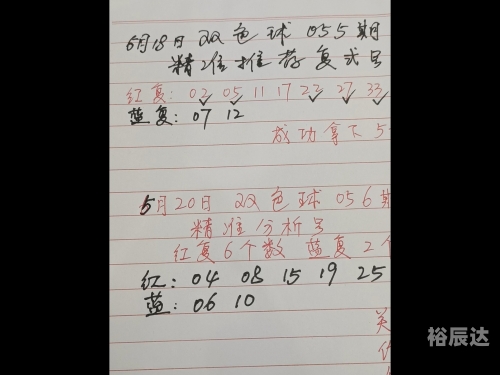 5月18日 双色球 055期
精准推荐复式号
红复: 02 05 11 17 22 27 33
蓝复: 07 12
成功拿下5
5月20日 双色球 056期
精准分析号
红复6个数 蓝复2个
红: 04 08 15 19 25
蓝: 06 10
关
裕辰达